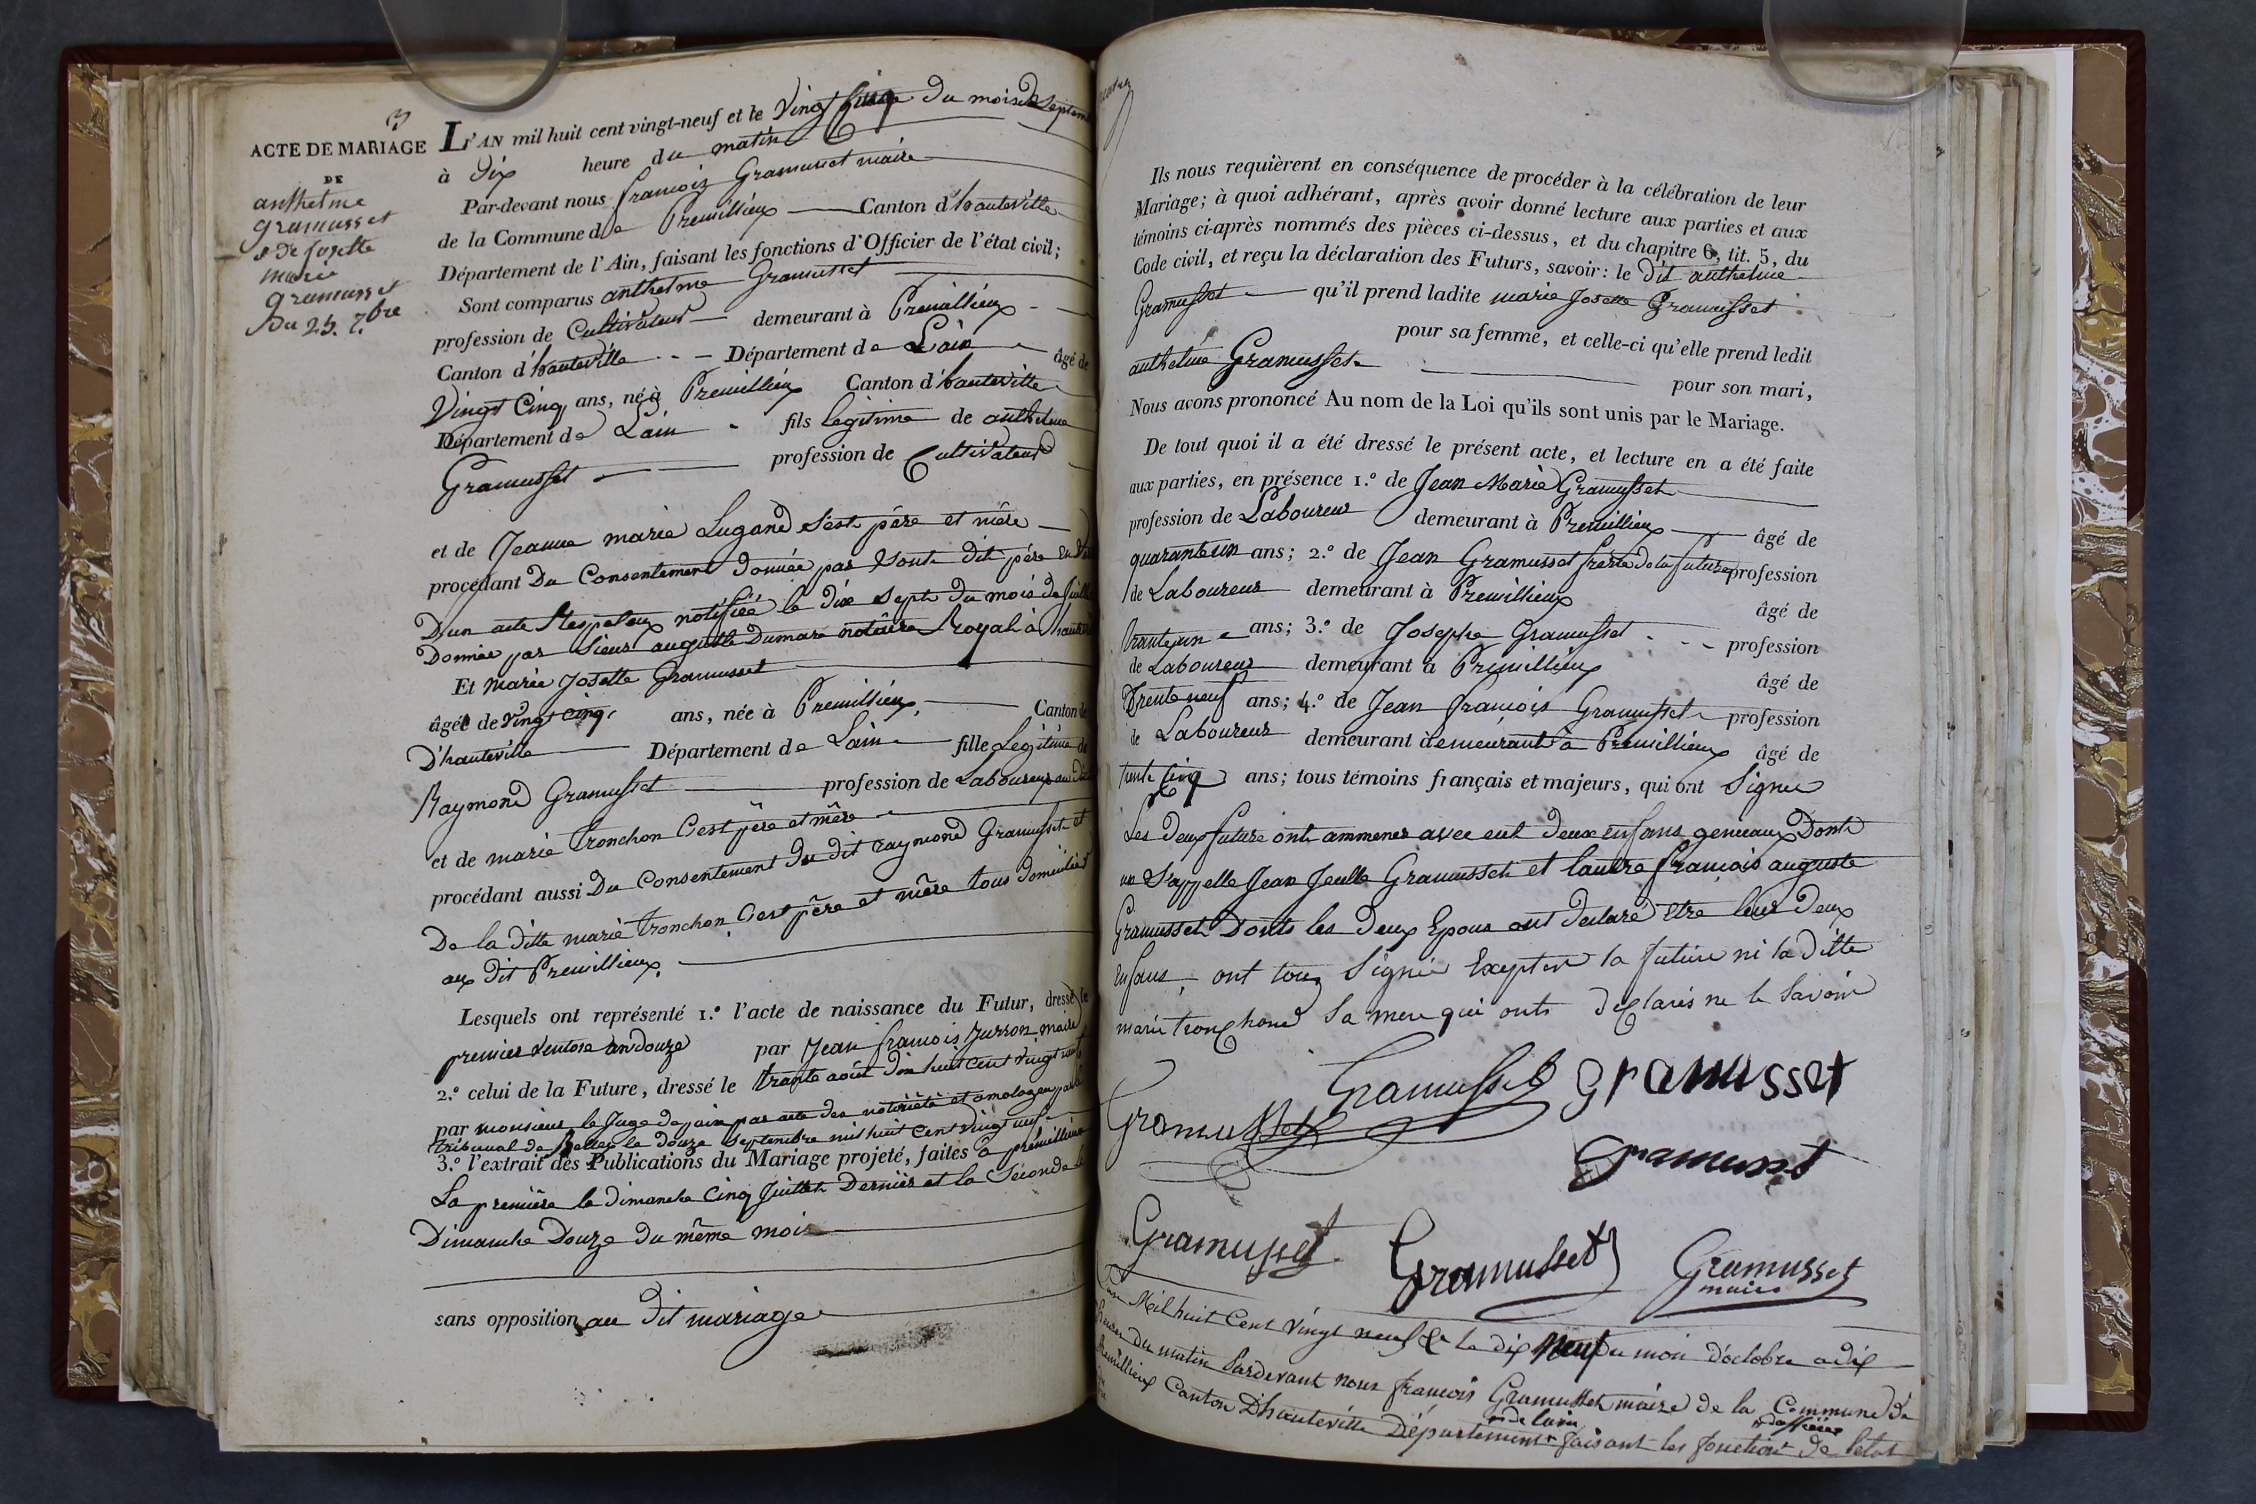 (3)
ACTE DE MARIAGE
DE
anthelme
gramusset
et de josette
marie
gramusset
Du 25. 7.bre
L'AN mil huit cent vingt-neuf et le Vingt Cinq du mois de Septem
à Dix heure du matin
Par-devant nous francois Gramusset maire
de la Commune de Premillieux Canton d'hauteville
Département de l'Ain, faisant les fonctions d'Officier de l'état civil;
Sont comparus anthelme Gramusset
profession de Cultivateur demeurant à Premillieux
Canton d'hauteville Département de Lain âgé de
Vingt Cinq ans, né à Premillieux Canton d'hauteville
Département de Lain fils legitime de anthelme
Gramusset profession de Cultivateur
et de Jeanne marie Lugand s'est père et mère
procédant Du Consentement donnée par sont dit père en
D'un acte Respetoux notifiée le dix sept du mois de Juill
Donnée par Sieur auguste Dumare notaire Royal à haute
Et marie Josette Gramusset
âgée de vingt cinq ans, née à Premillieux Canton de
D'hauteville Département de Lain fille Legitime de
Raymond Gramusset profession de Laboureur au dit
et de marie Tronchon C'est père et mère
procédant aussi Du Consentement du dit raymond Gramusset et
De la ditte marie tronchon C'est père et mère tous domiciliés
au dit Premillieux.
Lesquels ont représenté 1.° l'acte de naissance du Futur, dressé le
premier ventose an douze par Jean francois Jurron maire
2.° celui de la Future, dressé le trante août din huit cent vingt neuf
par monsieur le Juge de paix par acte de notorièté et omologuer par le
tribunal de Belley le douze septembre mil huit cent vingt neuf
3.° l'extrait des Publications du Mariage projeté, faites à premillieux
La première le dimanche Cinq Juillet Dernier et la Seconde le
Dimanche Douze du même mois
sans opposition au dit mariage
Ils nous requièrent en conséquence de procéder à la célébration de leur
Mariage; à quoi adhérant, après avoir donné lecture aux parties et aux
témoins ci-après nommés des pièces ci-dessus, et du chapitre 6, tit. 5, du
Code civil, et reçu la déclaration des Futurs, savoir: le dit anthelme
Gramusset qu'il prend ladite marie Josette Gramusset
pour sa femme, et celle-ci qu'elle prend ledit
anthelme Gramusset
pour son mari,
Nous avons prononcé Au nom de la Loi qu'ils sont unis par le Mariage.
De tout quoi il a été dressé le présent acte, et lecture en a été faite
aux parties, en présence 1.° de Jean Marie Gramusset
profession de Laboureur demeurant à Premillieux âgé de
quarante un ans; 2.° de Jean Gramusset frère de la future profession
de Laboureur demeurant à Premillieux âgé de
trante un ans; 3.° de Josephe Gramusset profession
de Laboureur demeurant à Premillieux âgé de
Trente neuf ans; 4.° de Jean francois Gramusset profession
de Laboureur demeurant à demeurant à Premillieux âgé de
trente Cinq ans; tous témoins français et majeurs, qui ont Signée
Les deux future ont ammener avec eut deux enfans gemeaux Dont
un S'appelle Jean Jeulle Gramusset et lautre francois auguste
Gramusset Donts les deux Epous ont declaré etre leur deux
enfans, ont tous Signée Exepter la future ni la ditte
marie tronchond sa mere qui onts declarés ne le savoir
Gramusset Gramusset
Gramusset
Gramusset
Gramusset Gramusset Gramusset
maire
L'an Mil huit Cent vingt neuf & le dix neuf du mois d'octobre a dix
heures du matin Pardevant nous francois Gramusset maire de la Commune de
Premillieux Canton D'hauteville Département de lain faisant les fonctions d'officier de l'etat